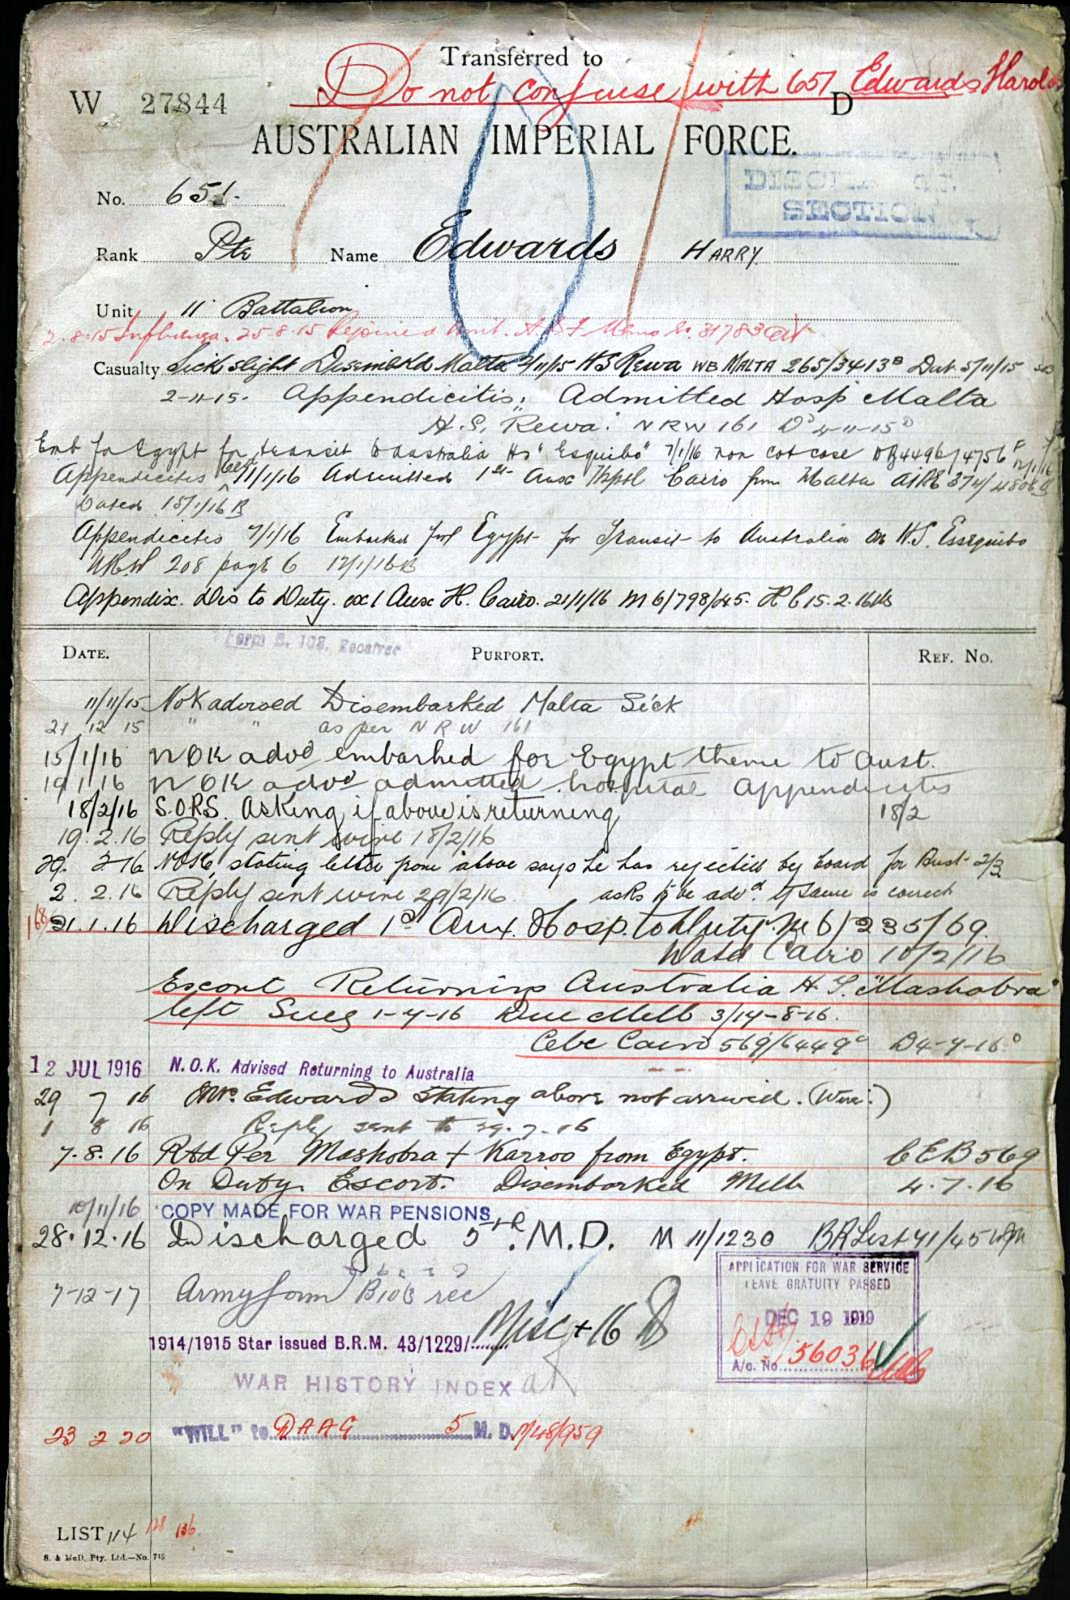 Transferred to
Do not confuse with 651 Edwards Harold
W 27844 D
AUSTRALIAN IMPERIAL FORCE.
SECTION
No. 651.
Rank Pte Name Edwards HARRY
Unit 11 Battalion
2.8.15 Influenza. 25.8.15 Rejoined Unit.
Casualty Sick slight Disembkd Malta 2/11/15 HS Rewa WB MALTA 265/3413 Dat 5/11/15
2-11-15. Appendicitis; Admitted Hosp Malta
H.S. Rewa. NRW 161 D 4-11-15
Emb for Egypt for transit to Australia HS "Esquibo" 7/1/16 non cot case
Appendicitis 11/1/16 Admitted 1st Aux Hsptl Cairo from Malta
Dated 15/1/16
Appendicitis 7/1/16 Embarked for Egypt for Transit to Australia on H.S. Essequibo
208 page 6 12/1/16
Appendix. Dis to Duty. ex 1 Aux H. Cairo. 21/1/16 M6/798/645. HC 15.2.16
Form B. 103. Received
DATE. PURPORT. REF. NO.
11/11/15 NoK advised Disembarked Malta Sick
21 12 15 " " as per NRW 161
15/1/16 NOK advd embarked for Egypt thence to Aust.
19/1/16 NOK advd admitted hospital Appendicitis
18/2/16 S.O.R.S. Asking if above is returning 18/2
19.2.16 Reply sent wire 18/2/16
29. 2 16 NOK stating letter from above says he has rejected by board for Aust 2/3
2. 2.16 Reply sent wire 29/2/16 asks to be advd. if same is correct
21.1.16 Discharged 1st Aux. Hosp. to Duty. M6/235/69.
Cairo 10/2/16
Escort Returning Australia H.S. "Mashobra"
left Suez 1-7-16 Due Melb 3/14-8-16.
Cable Cairo 569/6449 D4-7-16
12 JUL 1916 N.O.K. Advised Returning to Australia
29 7 16 Mr. Edwards stating above not arrived. (Wire.)
1 8 16 Reply sent to 29.7.16
7.8.16 Rtd Per Mashobra + Karroo from Egypt. CEB 569
On Duty Escort. Disembarked Melb 4.7.16
10/11/16 COPY MADE FOR WAR PENSIONS.
28.12.16 Discharged 5th. M.D. M 11/1230 BR List 41/45
7-12-17 Army form B103 rec
APPLICATION FOR WAR SERVICE
LEAVE GRATUITY PASSED
DEC 19 1919
A/c. No. 56036
1914/1915 Star issued B.R.M. 43/1229/
WAR HISTORY INDEX
23 2 20 "WILL" to DAAG 5 M.D. 1/48/959
LIST 114 128 136.
S. & McD. Pty. Ltd.—No. 715